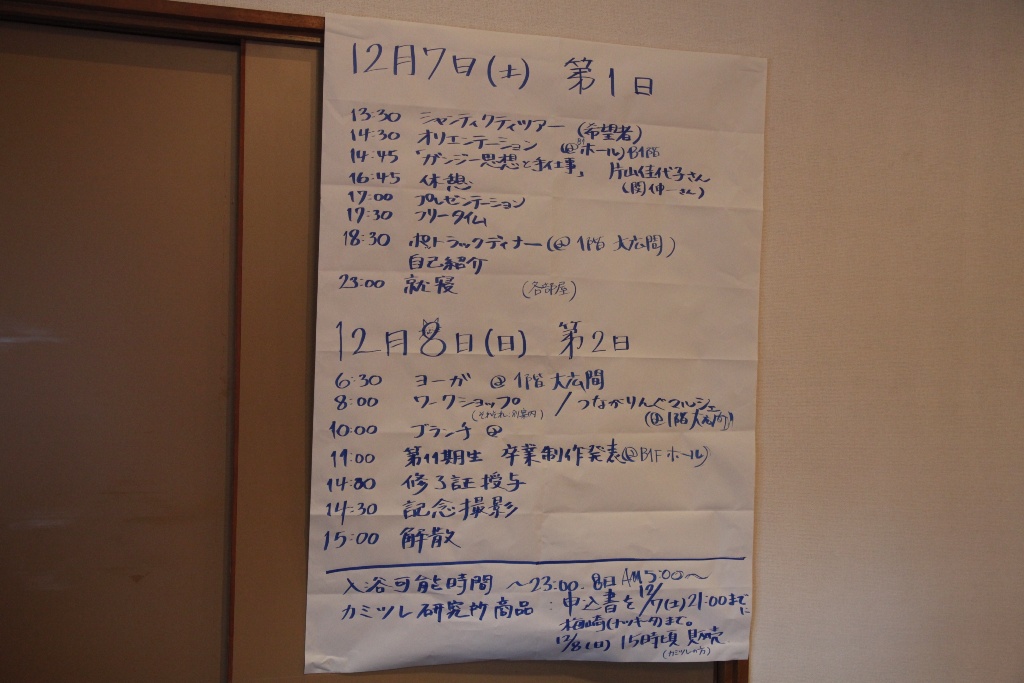 12月7日(土) 第1日
13:30 シャンティクティツアー (希望者)
14:30 オリエンテーション (@ホール) B1階
14:45 「ガンジー思想と手仕事」 片山佳代子さん
16:45 休憩 (関伸一さん)
17:00 プレゼンテーション
17:30 フリータイム
18:30 ポットラックディナー (@ 1階 大広間)
自己紹介
23:00 就寝 (各部屋)
12月8日(日) 第2日
6:30 ヨーガ @ 1階 大広間
8:00 ワークショップ / つながりんぐマルシェ
(それぞれ別案内) (@1階大広間)
10:00 ブランチ @
11:00 第11期生 卒業制作発表(@B1Fホール)
14:00 修了証授与
14:30 記念撮影
15:00 解散
入浴可能時間 〜23:00. 8日AM5:00〜
カミツレ研究所商品 : 申込書を12/7(土)21:00までに
梅崎()まで。
12/8(日) 15時頃 販売
(カミツレの方)